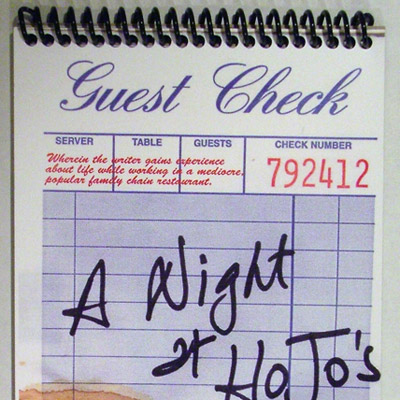 Guest Check
SERVER TABLE GUESTS CHECK NUMBER
Wherein the writer gains experience
about life while working in a mediocre,
popular family chain restaurant.
792412
A Night
at HoJo's